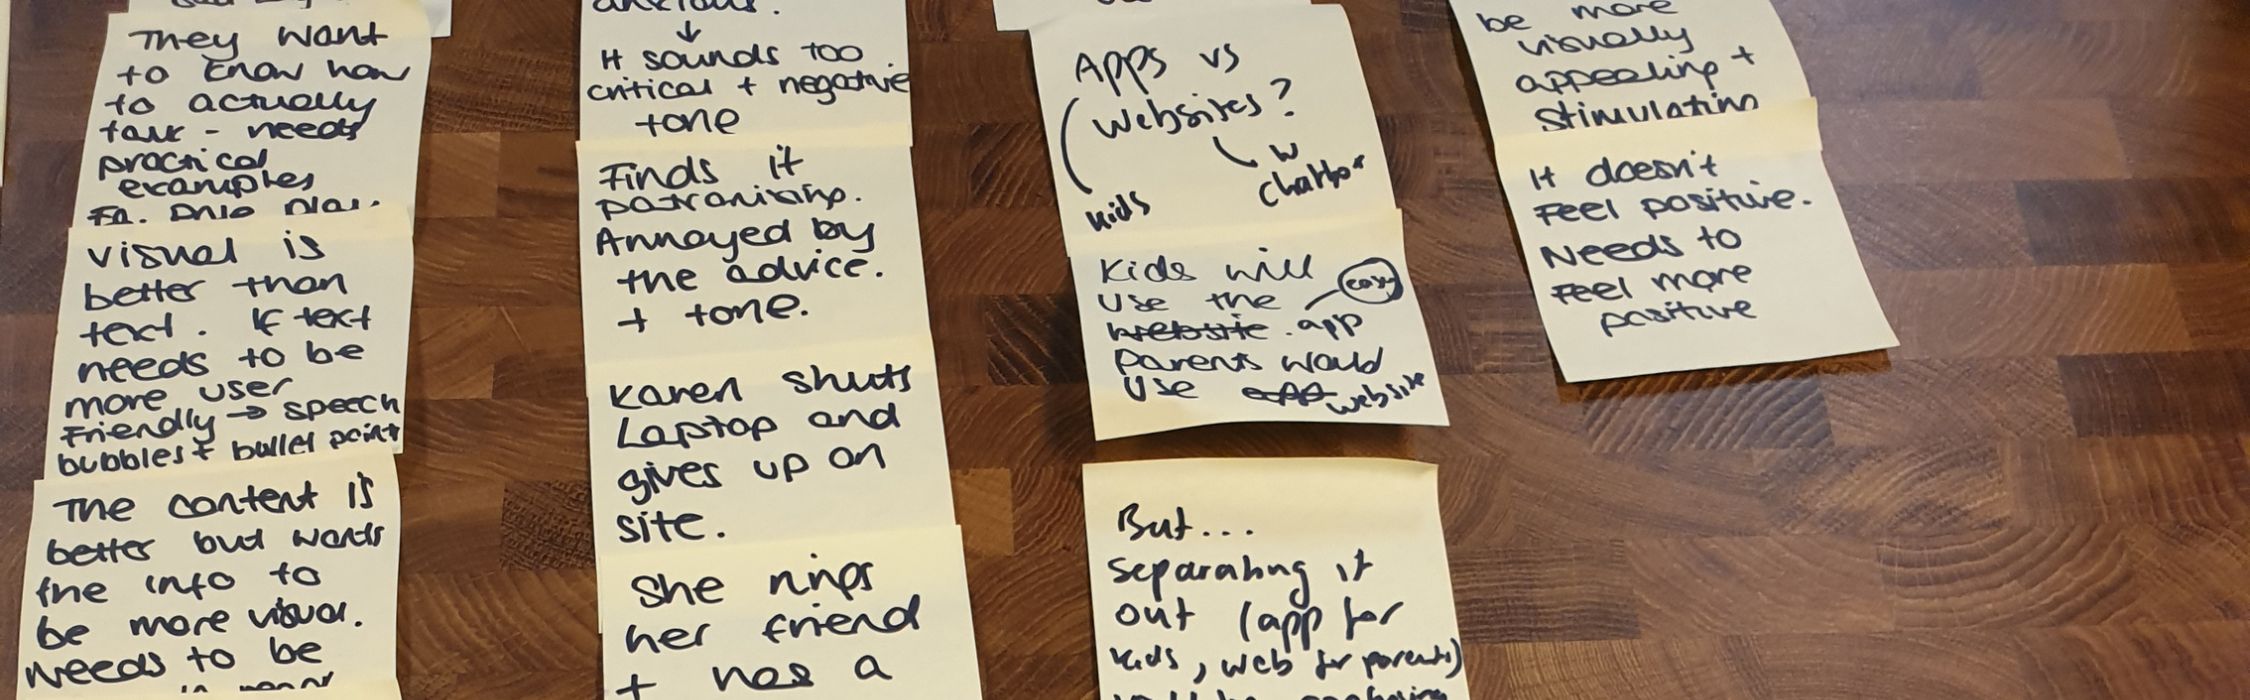 They want
to know how
to actually
talk - needs
practical
examples
visual is
better than
text. If text
needs to be
more user
Friendly → speech
bubbles + bullet point
The content is
better but wants
the info to
be more visual.
Needs to be
anxious.
↓
It sounds too
critical + negative
tone
Finds it
patronising.
Annoyed by
the advice.
+ tone.
Karen shuts
Laptop and
gives up on
site.
She rings
her friend
+ has a
Apps vs
websites?
w
chatbot
kids
Kids will
use the easy
website. app
Parents would
use app website
But...
separating it
out (app for
kids, web for parents)
be more
visually
appealing +
stimulating
It doesn't
Feel positive.
Needs to
Feel more
positive